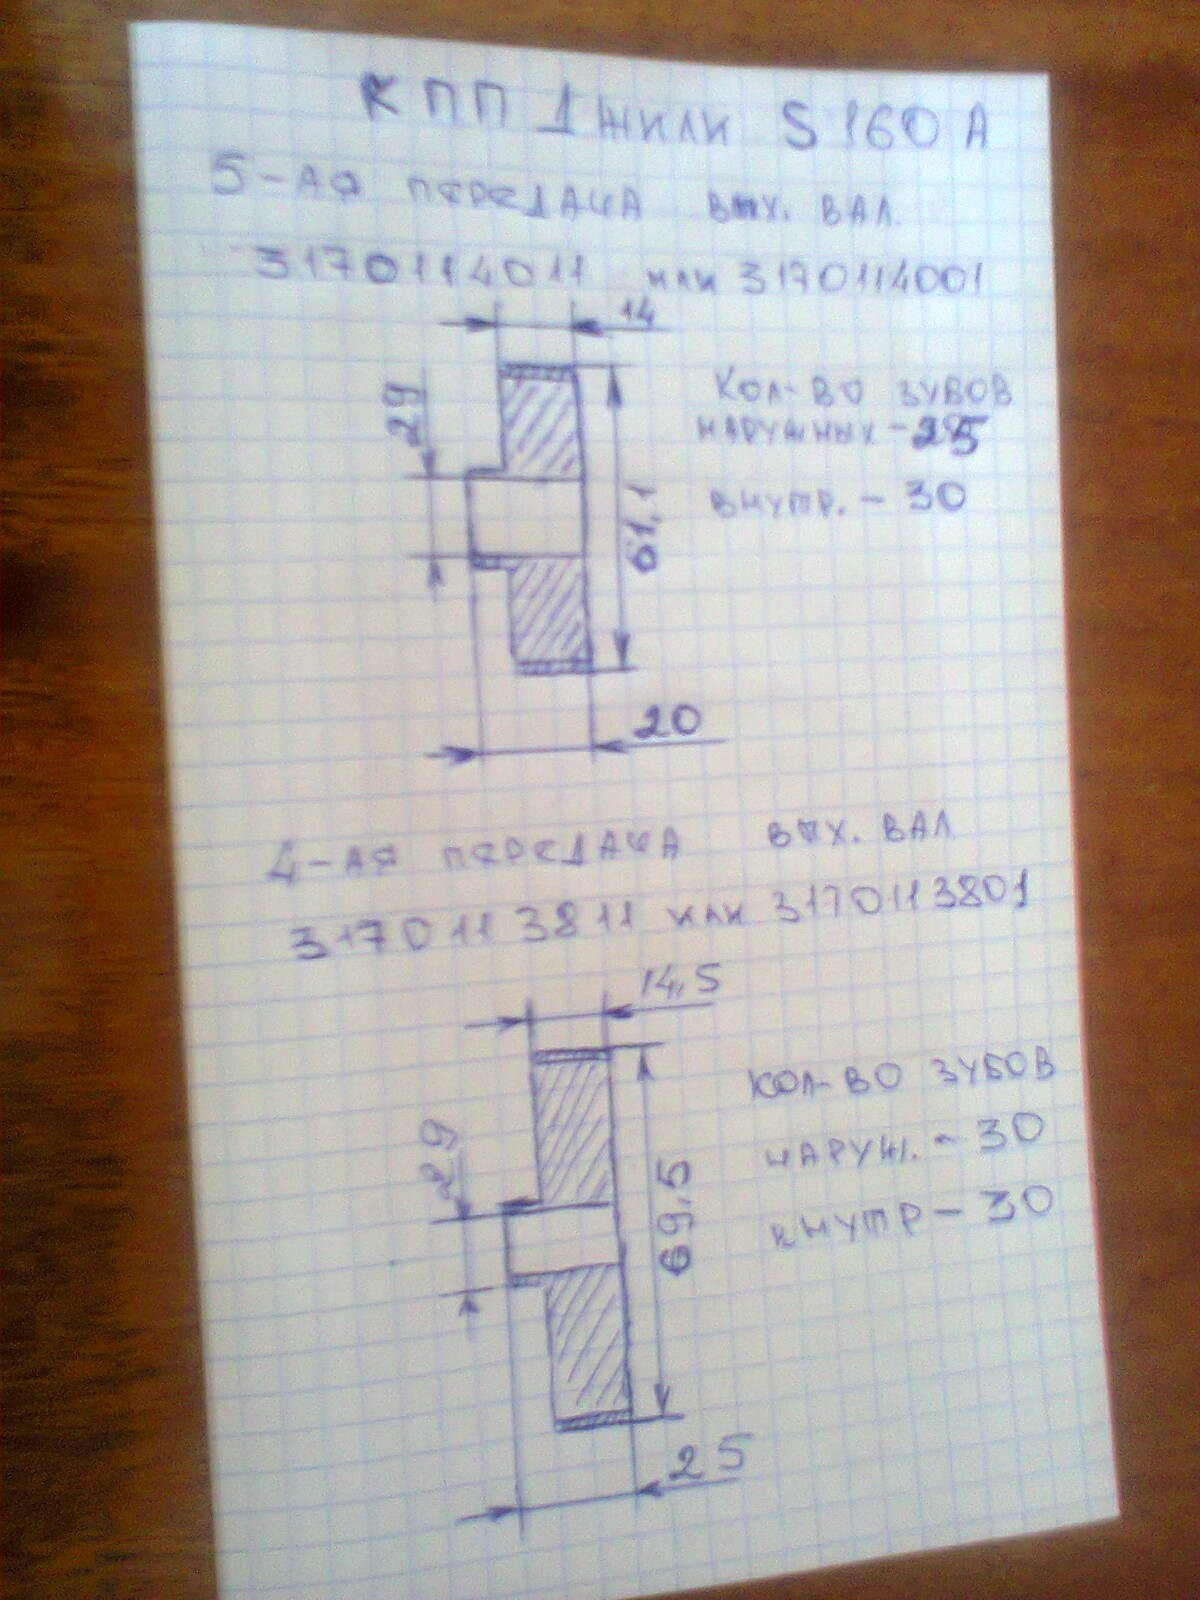 КПП Джили S160А
5-ая передача вых. вал.
3170114011 или 3170114001
14
29
Кол-во зубов
наружных - 25
внутр. - 30
61,1
20
4-ая передача вых. вал
3170113811 или 3170113801
14,5
29
Кол-во зубов
наруж. - 30
внутр - 30
69,5
25